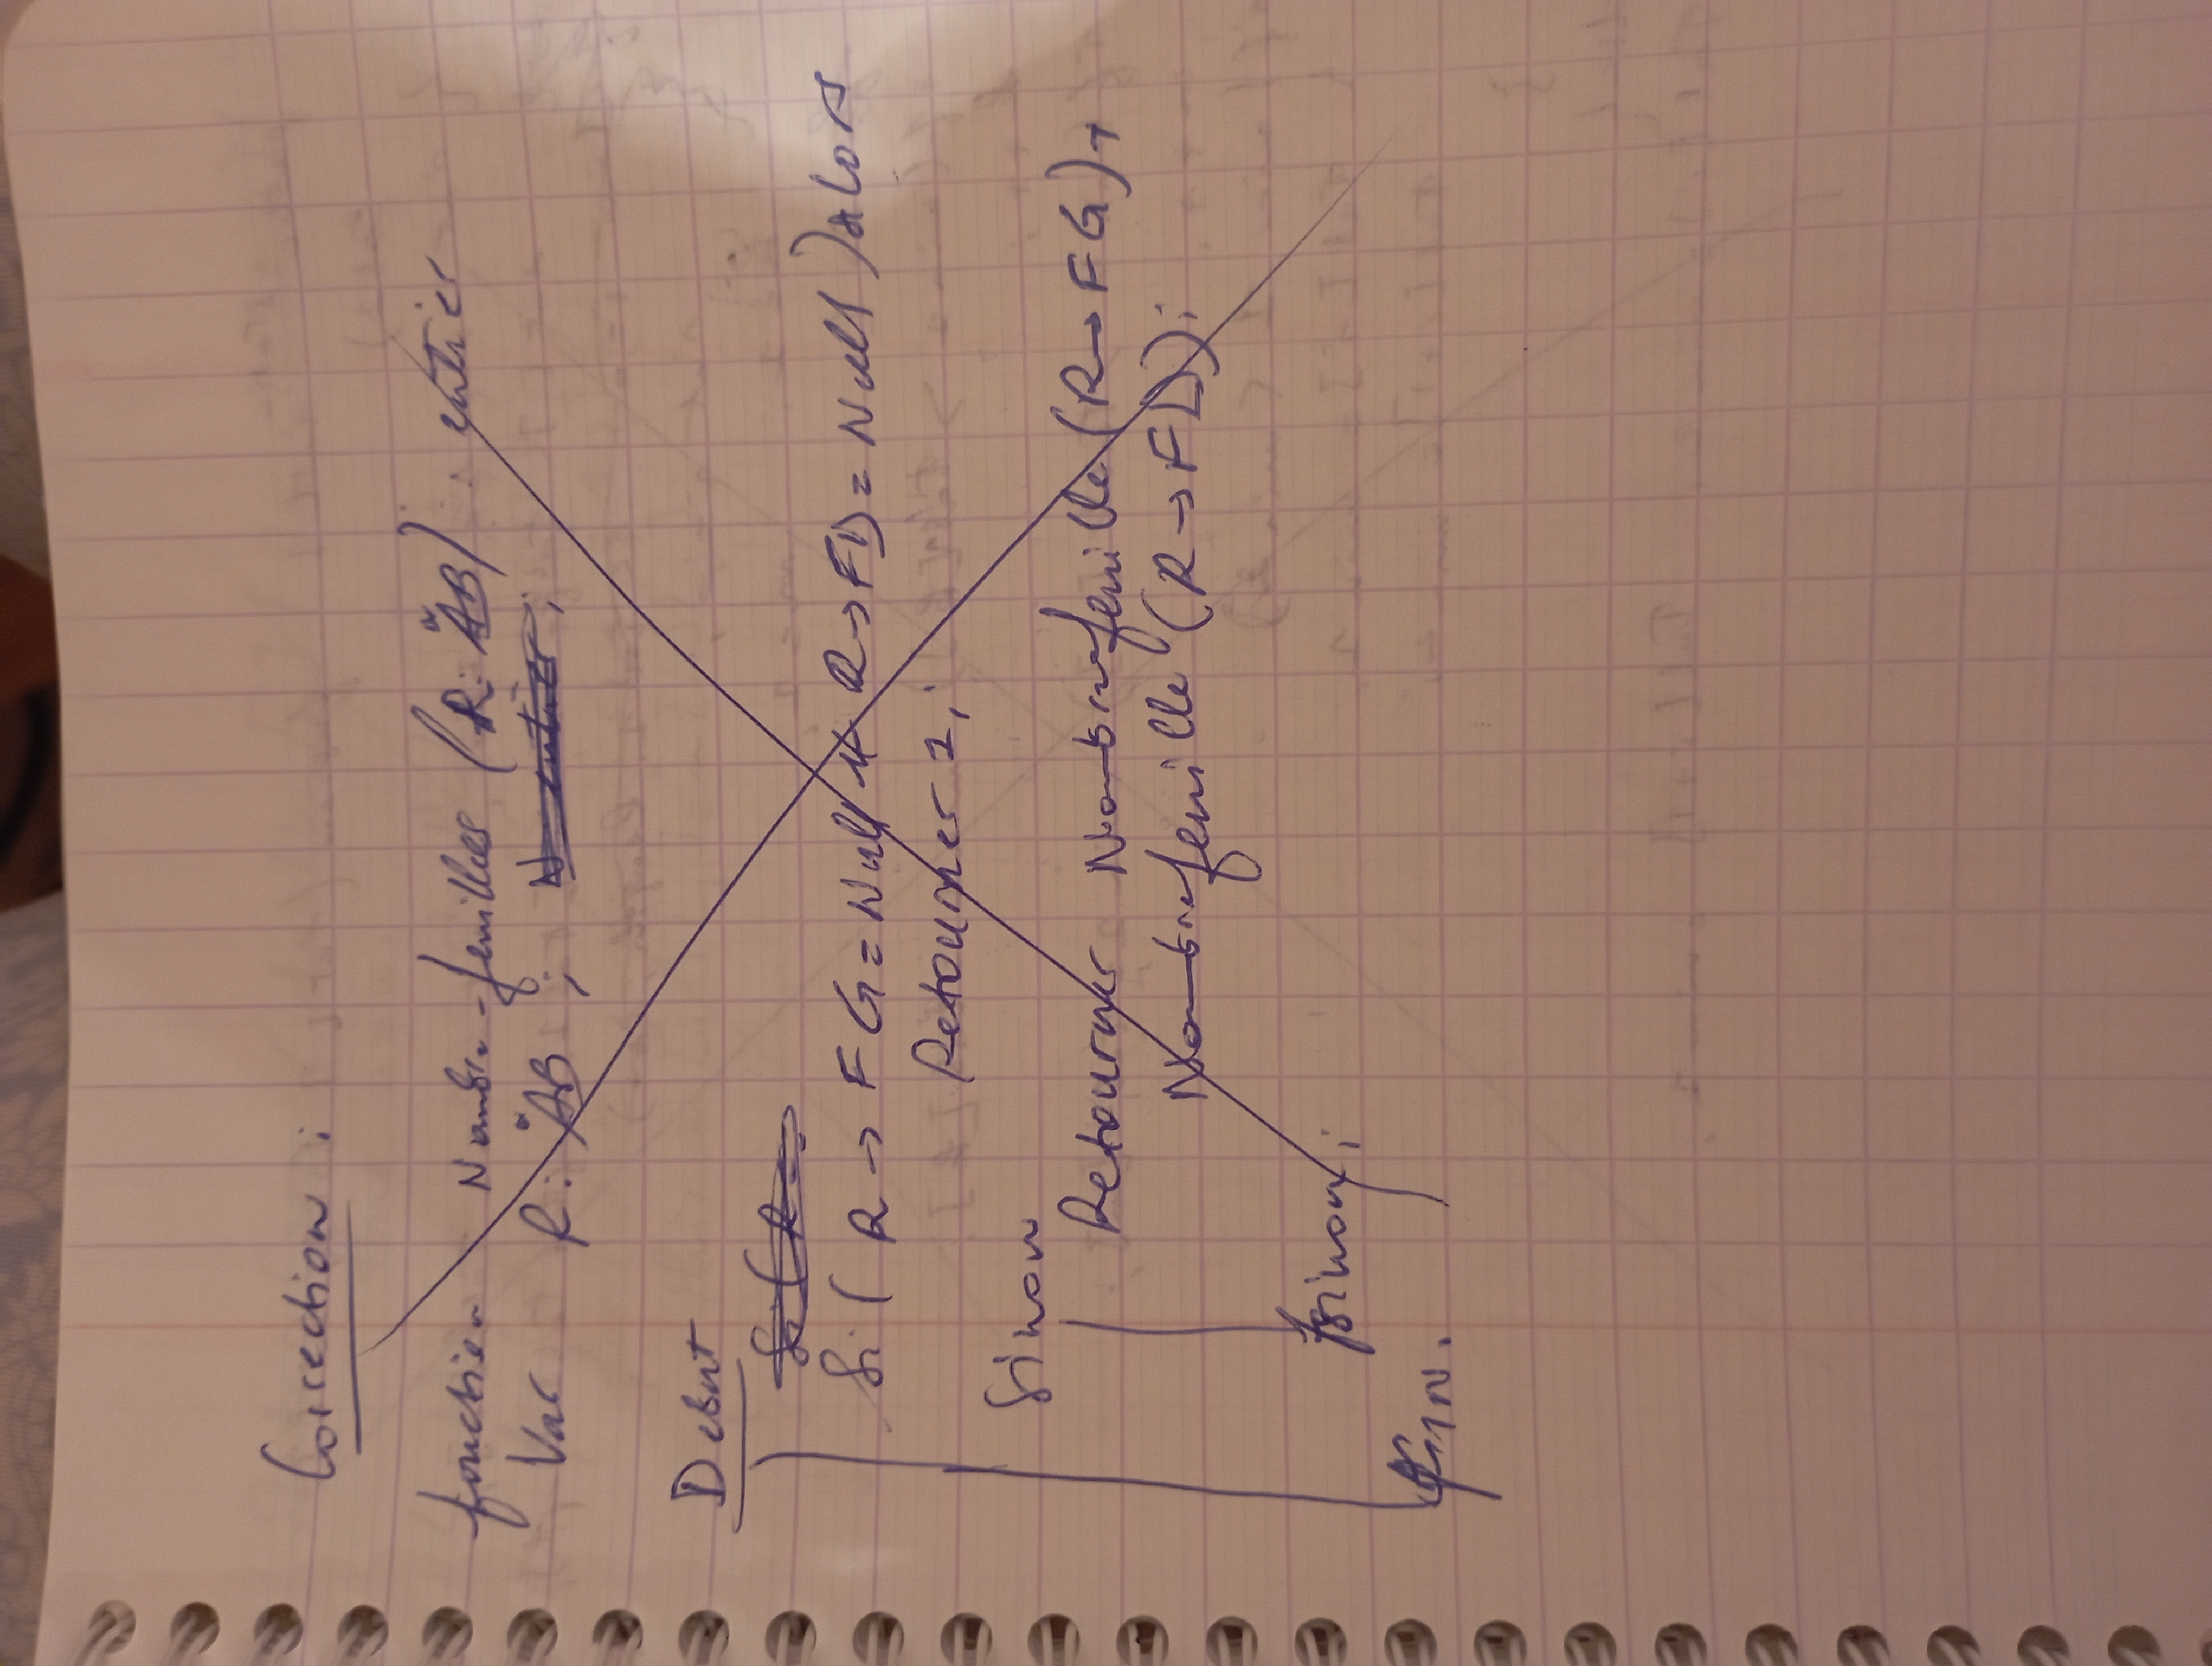 Correction :
fonction Nombre-feuilles (R: *AB) : entier
Var R: *AB ; N entier ;
Debut
Si (R →
Si ( R → FG = Null et R → FD = Null ) alors
Retourner 1 ;
Sinon
Retourner Nombrefeuille (R → FG) +
Nombrefeuille (R → FD) ;
fsinon ;
fin.